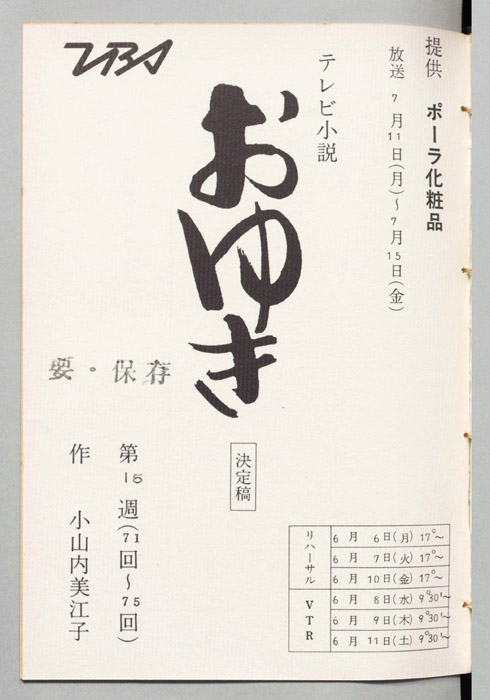 提供 ポーラ化粧品
放送 7月11日(月)〜7月15日(金)
テレビ小説
おゆき
TBS
決定稿
要・保存
第15週(71回〜75回)
作 小山内美江子
リハーサル
6月 6日(月) 17°〜
6月 7日(火) 17°〜
6月 10日(金) 17°〜
VTR
6月 8日(水) 9°30'〜
6月 9日(木) 9°30'〜
6月 11日(土) 9°30'〜